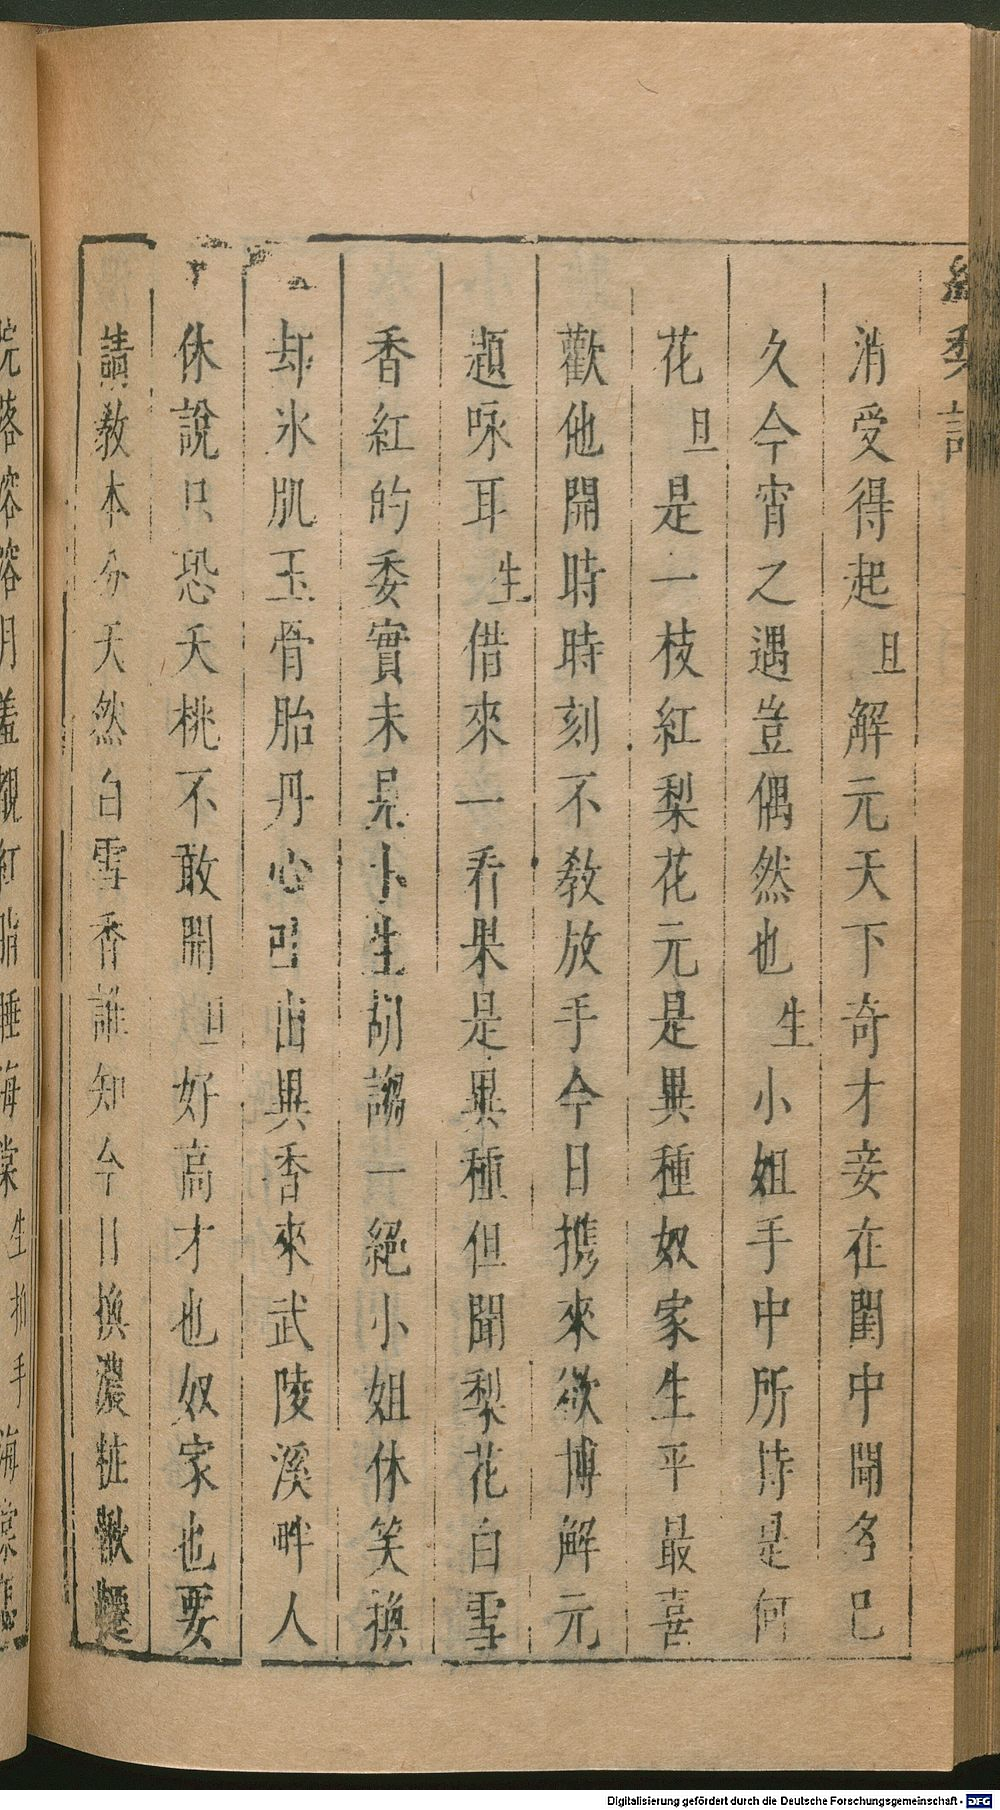 紅梨記
消受得起旦解元天下奇才妾在閨中聞名已
久今宵之遇豈偶然也生小姐手中所持是何
花旦是一枝紅梨花元是異種奴家生平最喜
歡他開時時刻不教放手今日携來欲博解元
題咏耳生借來一看果是異種但聞梨花白雪
香紅的委實未見卜生胡謅一絕小姐休笑換
却氷肌玉骨胎丹心已出異香來武陵溪畔人
休說只恐夭桃不敢開旦好高才也奴家也要
請教本分天然白雪香誰知今日換濃粧鞦韆
院落溶溶月羞覩紅脂睡海棠生拍手海棠
Digitalisierung gefördert durch die Deutsche Forschungsgemeinschaft - DFG